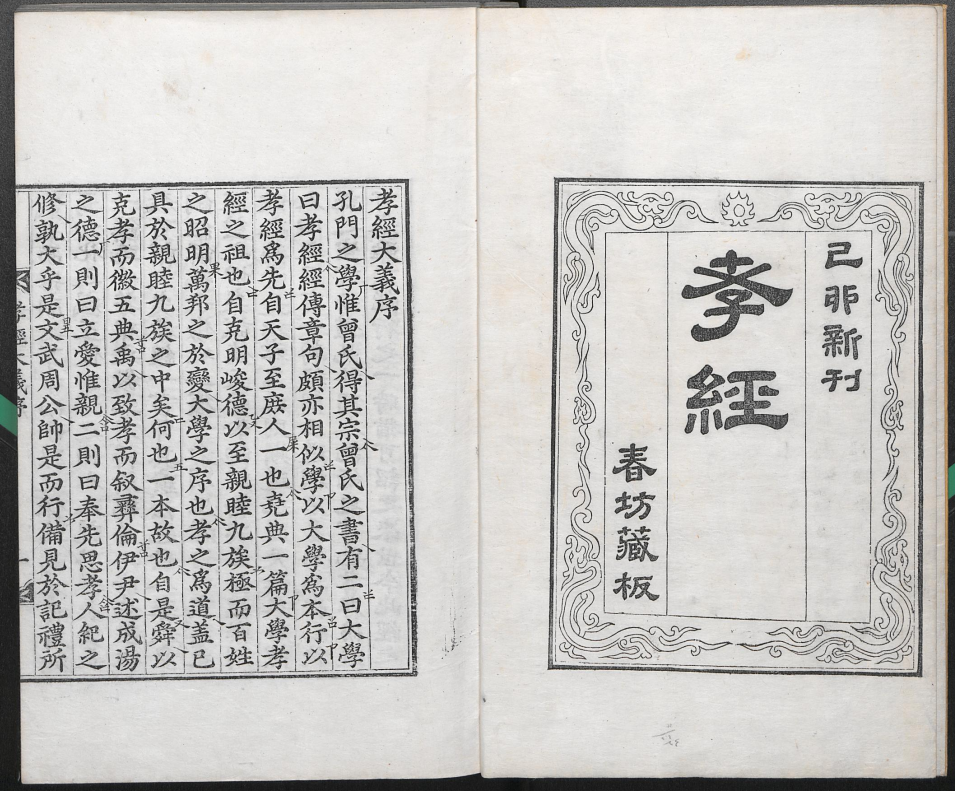 己卯新刊
孝經
春坊藏板
孝經大義序
孔門之學惟曾氏得其宗曾氏之書有二曰大學
曰孝經經傳章句頗亦相似學以大學爲本行以
孝經爲先自天子至庶人一也堯典一篇大學孝
經之祖也自克明峻德以至親睦九族極而百姓
之昭明萬邦之於變大學之序也孝之爲道蓋已
具於親睦九族之中矣何也一本故也自是舜以
克孝而徽五典禹以致孝而叙彝倫伊尹述成湯
之德一則曰立愛惟親二則曰奉先思孝人紀之
修孰大乎是文武周公帥是而行備見於記禮所
孝經大義序
一